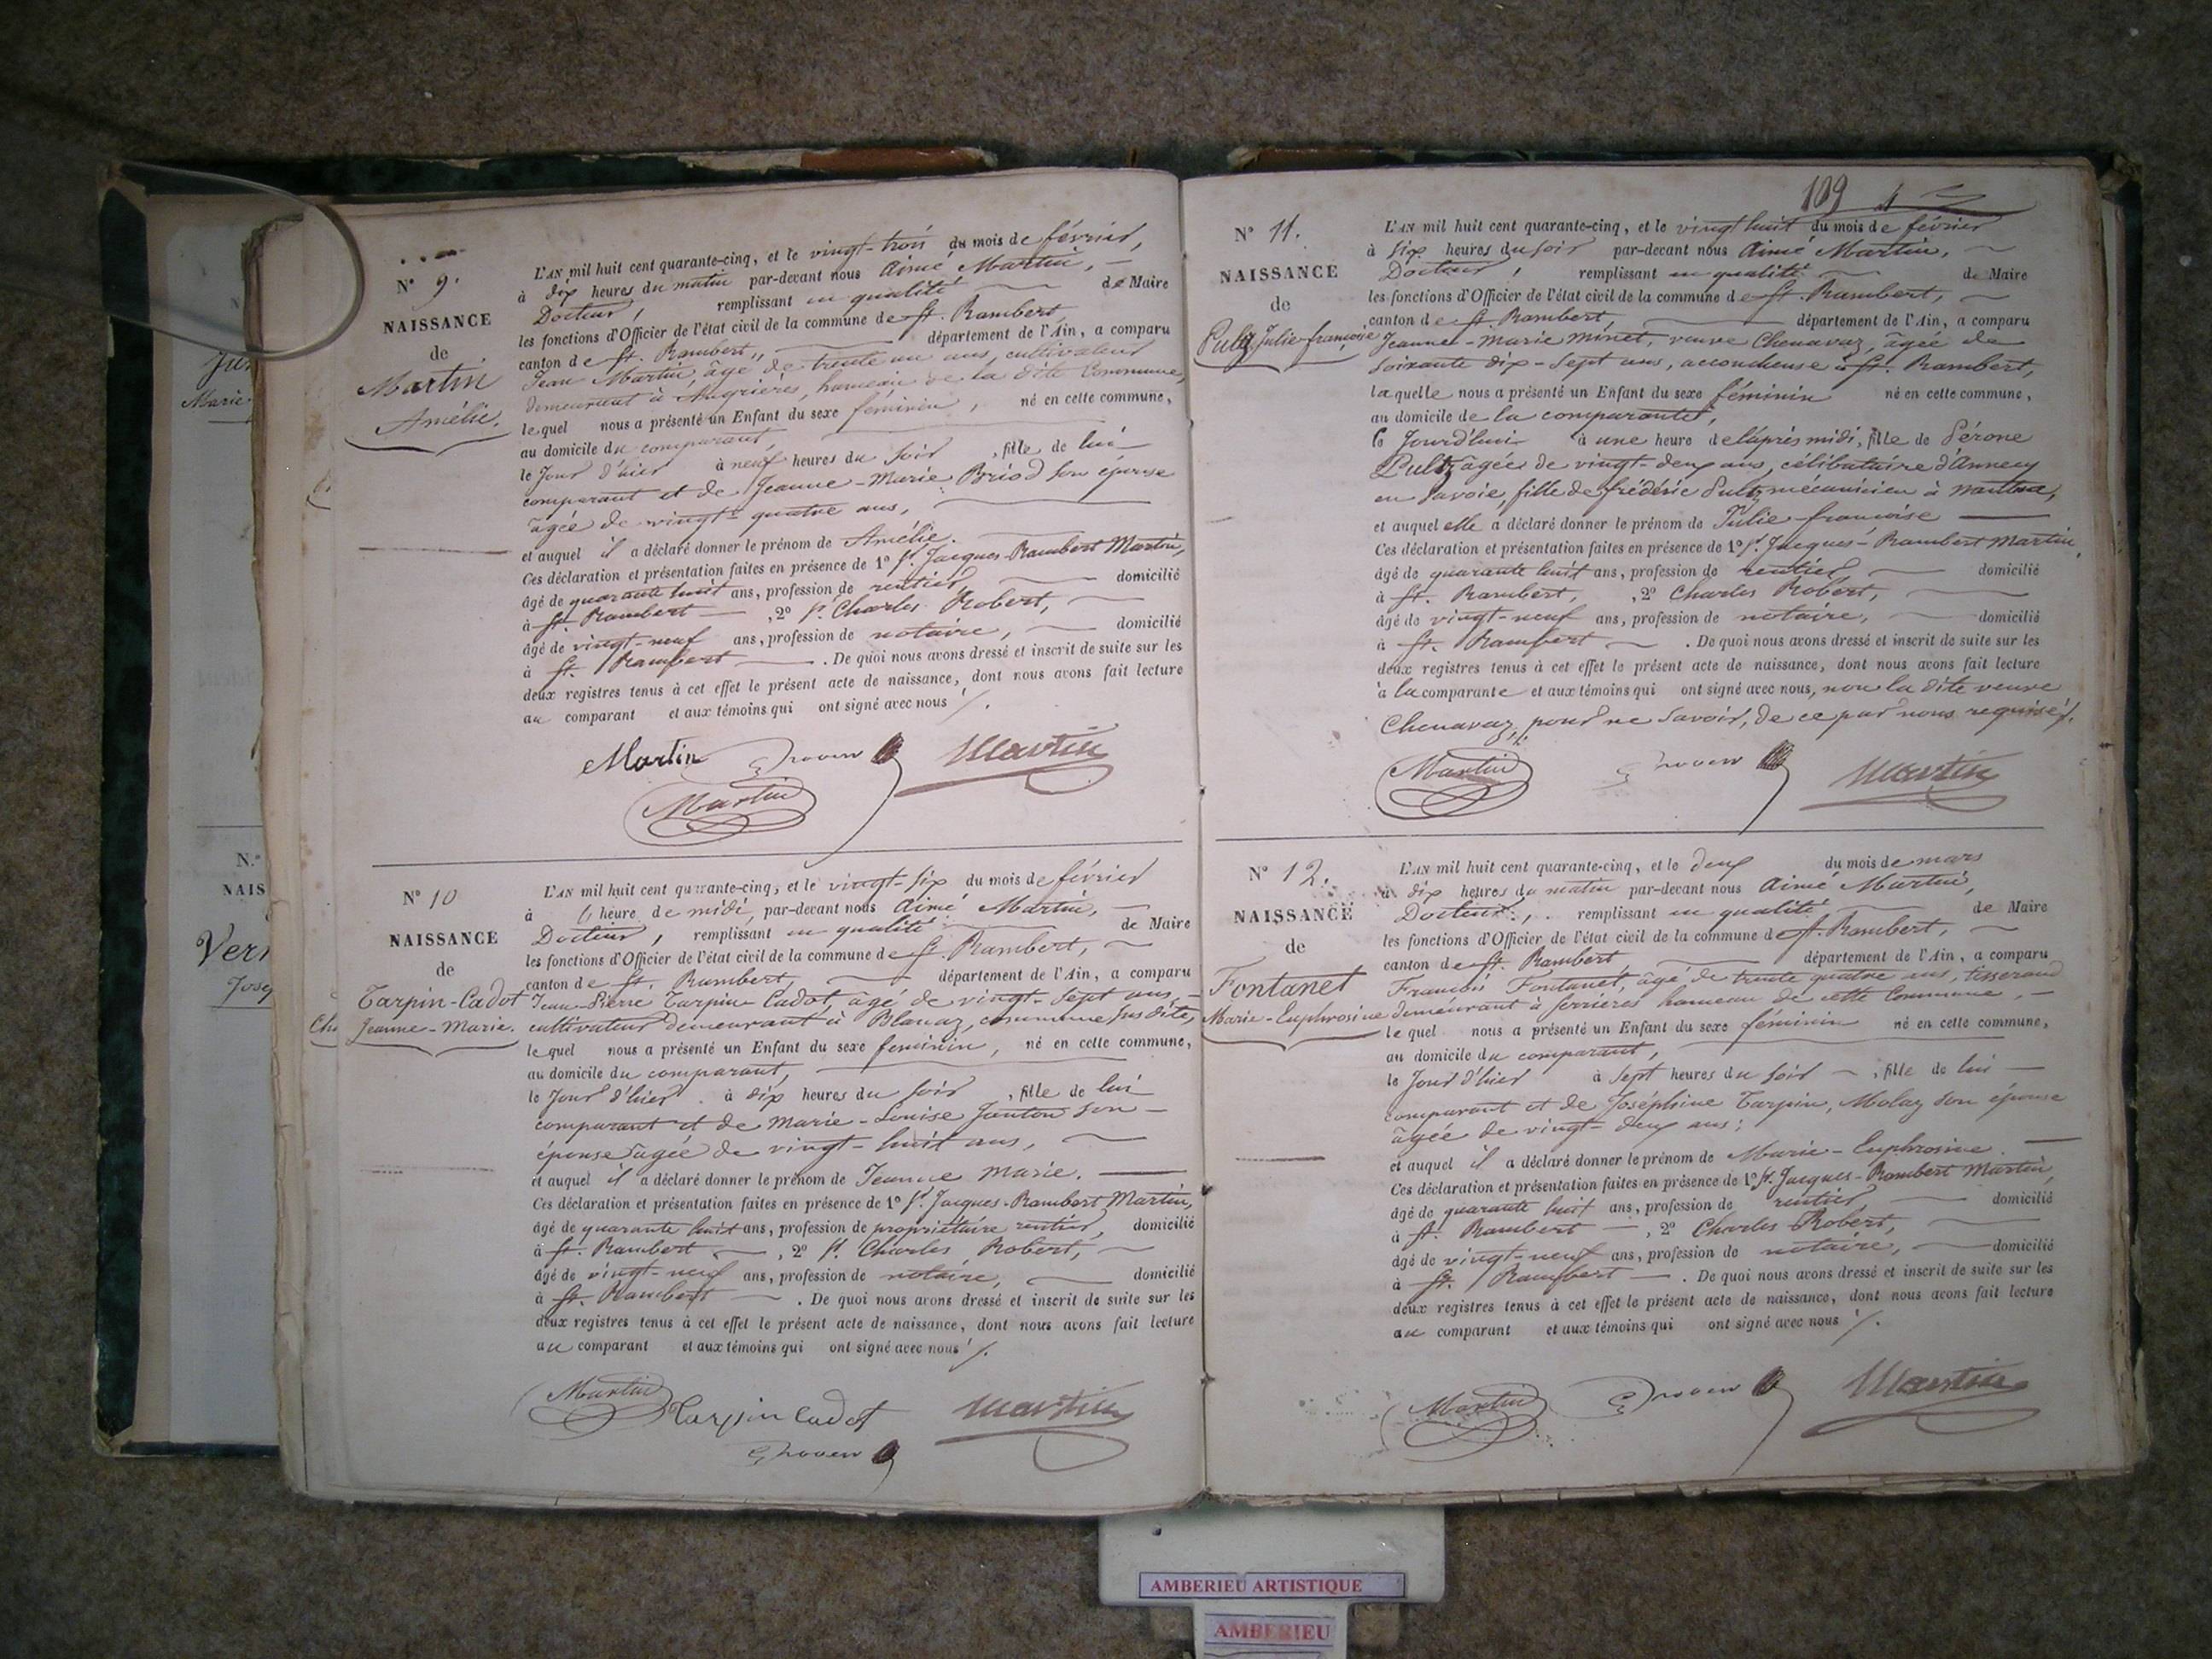 N° 9.
NAISSANCE
de
Martin
Amélie.
L'AN mil huit cent quarante-cinq, et le vingt-trois du mois de février,
à dix heures du matin par-devant nous Aimé Martin,
Docteur, remplissant en qualité de Maire
les fonctions d'Officier de l'état civil de la commune de St. Rambert
canton de St. Rambert, département de l'Ain, a comparu
Jean Martin, âgé de trente un ans, cultivateur
demeurant à hameau de la dite Commune,
lequel nous a présenté un Enfant du sexe féminin, né en cette commune,
au domicile du comparant,
le Jour d'hier à neuf heures du soir, fille de lui
comparant et de Jeanne-Marie Briod son épouse
âgée de vingt-quatre ans,
et auquel il a déclaré donner le prénom de Amélie.
Ces déclaration et présentation faites en présence de 1° Sr. Jacques-Rambert Martin,
âgé de quarante huit ans, profession de rentier domicilié
à St. Rambert, 2° Sr. Charles Robert,
âgé de vingt-neuf ans, profession de notaire, domicilié
à St. Rambert. De quoi nous avons dressé et inscrit de suite sur les
deux registres tenus à cet effet le présent acte de naissance, dont nous avons fait lecture
au comparant et aux témoins qui ont signé avec nous /.
Martin Martin
Martin
N° 10
NAISSANCE
de
Tarpin-Cadot
Jeanne-Marie.
L'AN mil huit cent quarante-cinq, et le vingt-six du mois de février
à heure de midi, par-devant nous Aimé Martin,
Docteur, remplissant en qualité de Maire
les fonctions d'Officier de l'état civil de la commune de St. Rambert,
canton de St. Rambert, département de l'Ain, a comparu
Jean-Pierre Tarpin-Cadot, âgé de vingt-sept ans,
cultivateur demeurant à Blanaz, commune susdite,
lequel nous a présenté un Enfant du sexe feminin, né en cette commune,
au domicile du comparant,
le Jour d'hier à dix heures du soir, fille de lui
comparant et de Marie-Louise Janton son
épouse âgée de vingt-huit ans,
et auquel il a déclaré donner le prénom de Jeanne Marie.
Ces déclaration et présentation faites en présence de 1° Sr. Jacques-Rambert Martin,
âgé de quarante huit ans, profession de propriétaire rentier, domicilié
à St. Rambert, 2° Sr. Charles Robert,
âgé de vingt-neuf ans, profession de notaire, domicilié
à St. Rambert. De quoi nous avons dressé et inscrit de suite sur les
deux registres tenus à cet effet le présent acte de naissance, dont nous avons fait lecture
au comparant et aux témoins qui ont signé avec nous /.
Martin Tarpin Cadot Martin
109
N° 11.
NAISSANCE
de
Pultz Julie françoise
L'AN mil huit cent quarante-cinq, et le vingt huit du mois de février
à six heures du soir par-devant nous Aimé Martin,
Docteur, remplissant en qualité de Maire
les fonctions d'Officier de l'état civil de la commune de St. Rambert,
canton de St. Rambert, département de l'Ain, a comparu
Jeanne-Marie Minet, veuve Chenavaz, âgée de
soixante dix-sept ans, accoucheuse à St. Rambert,
laquelle nous a présenté un Enfant du sexe féminin né en cette commune,
au domicile de la comparante,
le Jourd'hui à une heure de l'après midi, fille de Pérone
Pultz âgée de vingt-deux ans, célibataire d'Annecy
en Savoie, fille de frédéric Pultz mécanicien à
et auquel elle a déclaré donner le prénom de Julie-françoise
Ces déclaration et présentation faites en présence de 1° Sr. Jacques-Rambert Martin,
âgé de quarante huit ans, profession de rentier domicilié
à St. Rambert, 2° Charles Robert,
âgé de vingt-neuf ans, profession de notaire, domicilié
à St. Rambert. De quoi nous avons dressé et inscrit de suite sur les
deux registres tenus à cet effet le présent acte de naissance, dont nous avons fait lecture
à la comparante et aux témoins qui ont signé avec nous, non la dite veuve
Chenavaz, pour ne savoir, de ce par nous requise/.
Martin Martin
N° 12.
NAISSANCE
de
Fontanet
Marie-Euphrosine
L'AN mil huit cent quarante-cinq, et le deux du mois de mars
à dix heures du matin par-devant nous Aimé Martin,
Docteur, remplissant en qualité de Maire
les fonctions d'Officier de l'état civil de la commune de St. Rambert,
canton de St. Rambert département de l'Ain, a comparu
François Fontanet, âgé de trente quatre ans, tisserand
demeurant à Serrières hameau de cette Commune,
lequel nous a présenté un Enfant du sexe féminin né en cette commune,
au domicile du comparant,
le Jour d'hier à sept heures du soir, fille de lui
comparant et de Joséphine Tarpin, Molaz son épouse
âgée de vingt-deux ans;
et auquel il a déclaré donner le prénom de Marie-Euphrosine
Ces déclaration et présentation faites en présence de 1° Sr. Jacques-Rambert Martin,
âgé de quarante huit ans, profession de rentier domicilié
à St. Rambert, 2° Charles Robert,
âgé de vingt-neuf ans, profession de notaire, domicilié
à St. Rambert. De quoi nous avons dressé et inscrit de suite sur les
deux registres tenus à cet effet le présent acte de naissance, dont nous avons fait lecture
au comparant et aux témoins qui ont signé avec nous /.
Martin Martin
AMBERIEU ARTISTIQUE
AMBERIEU